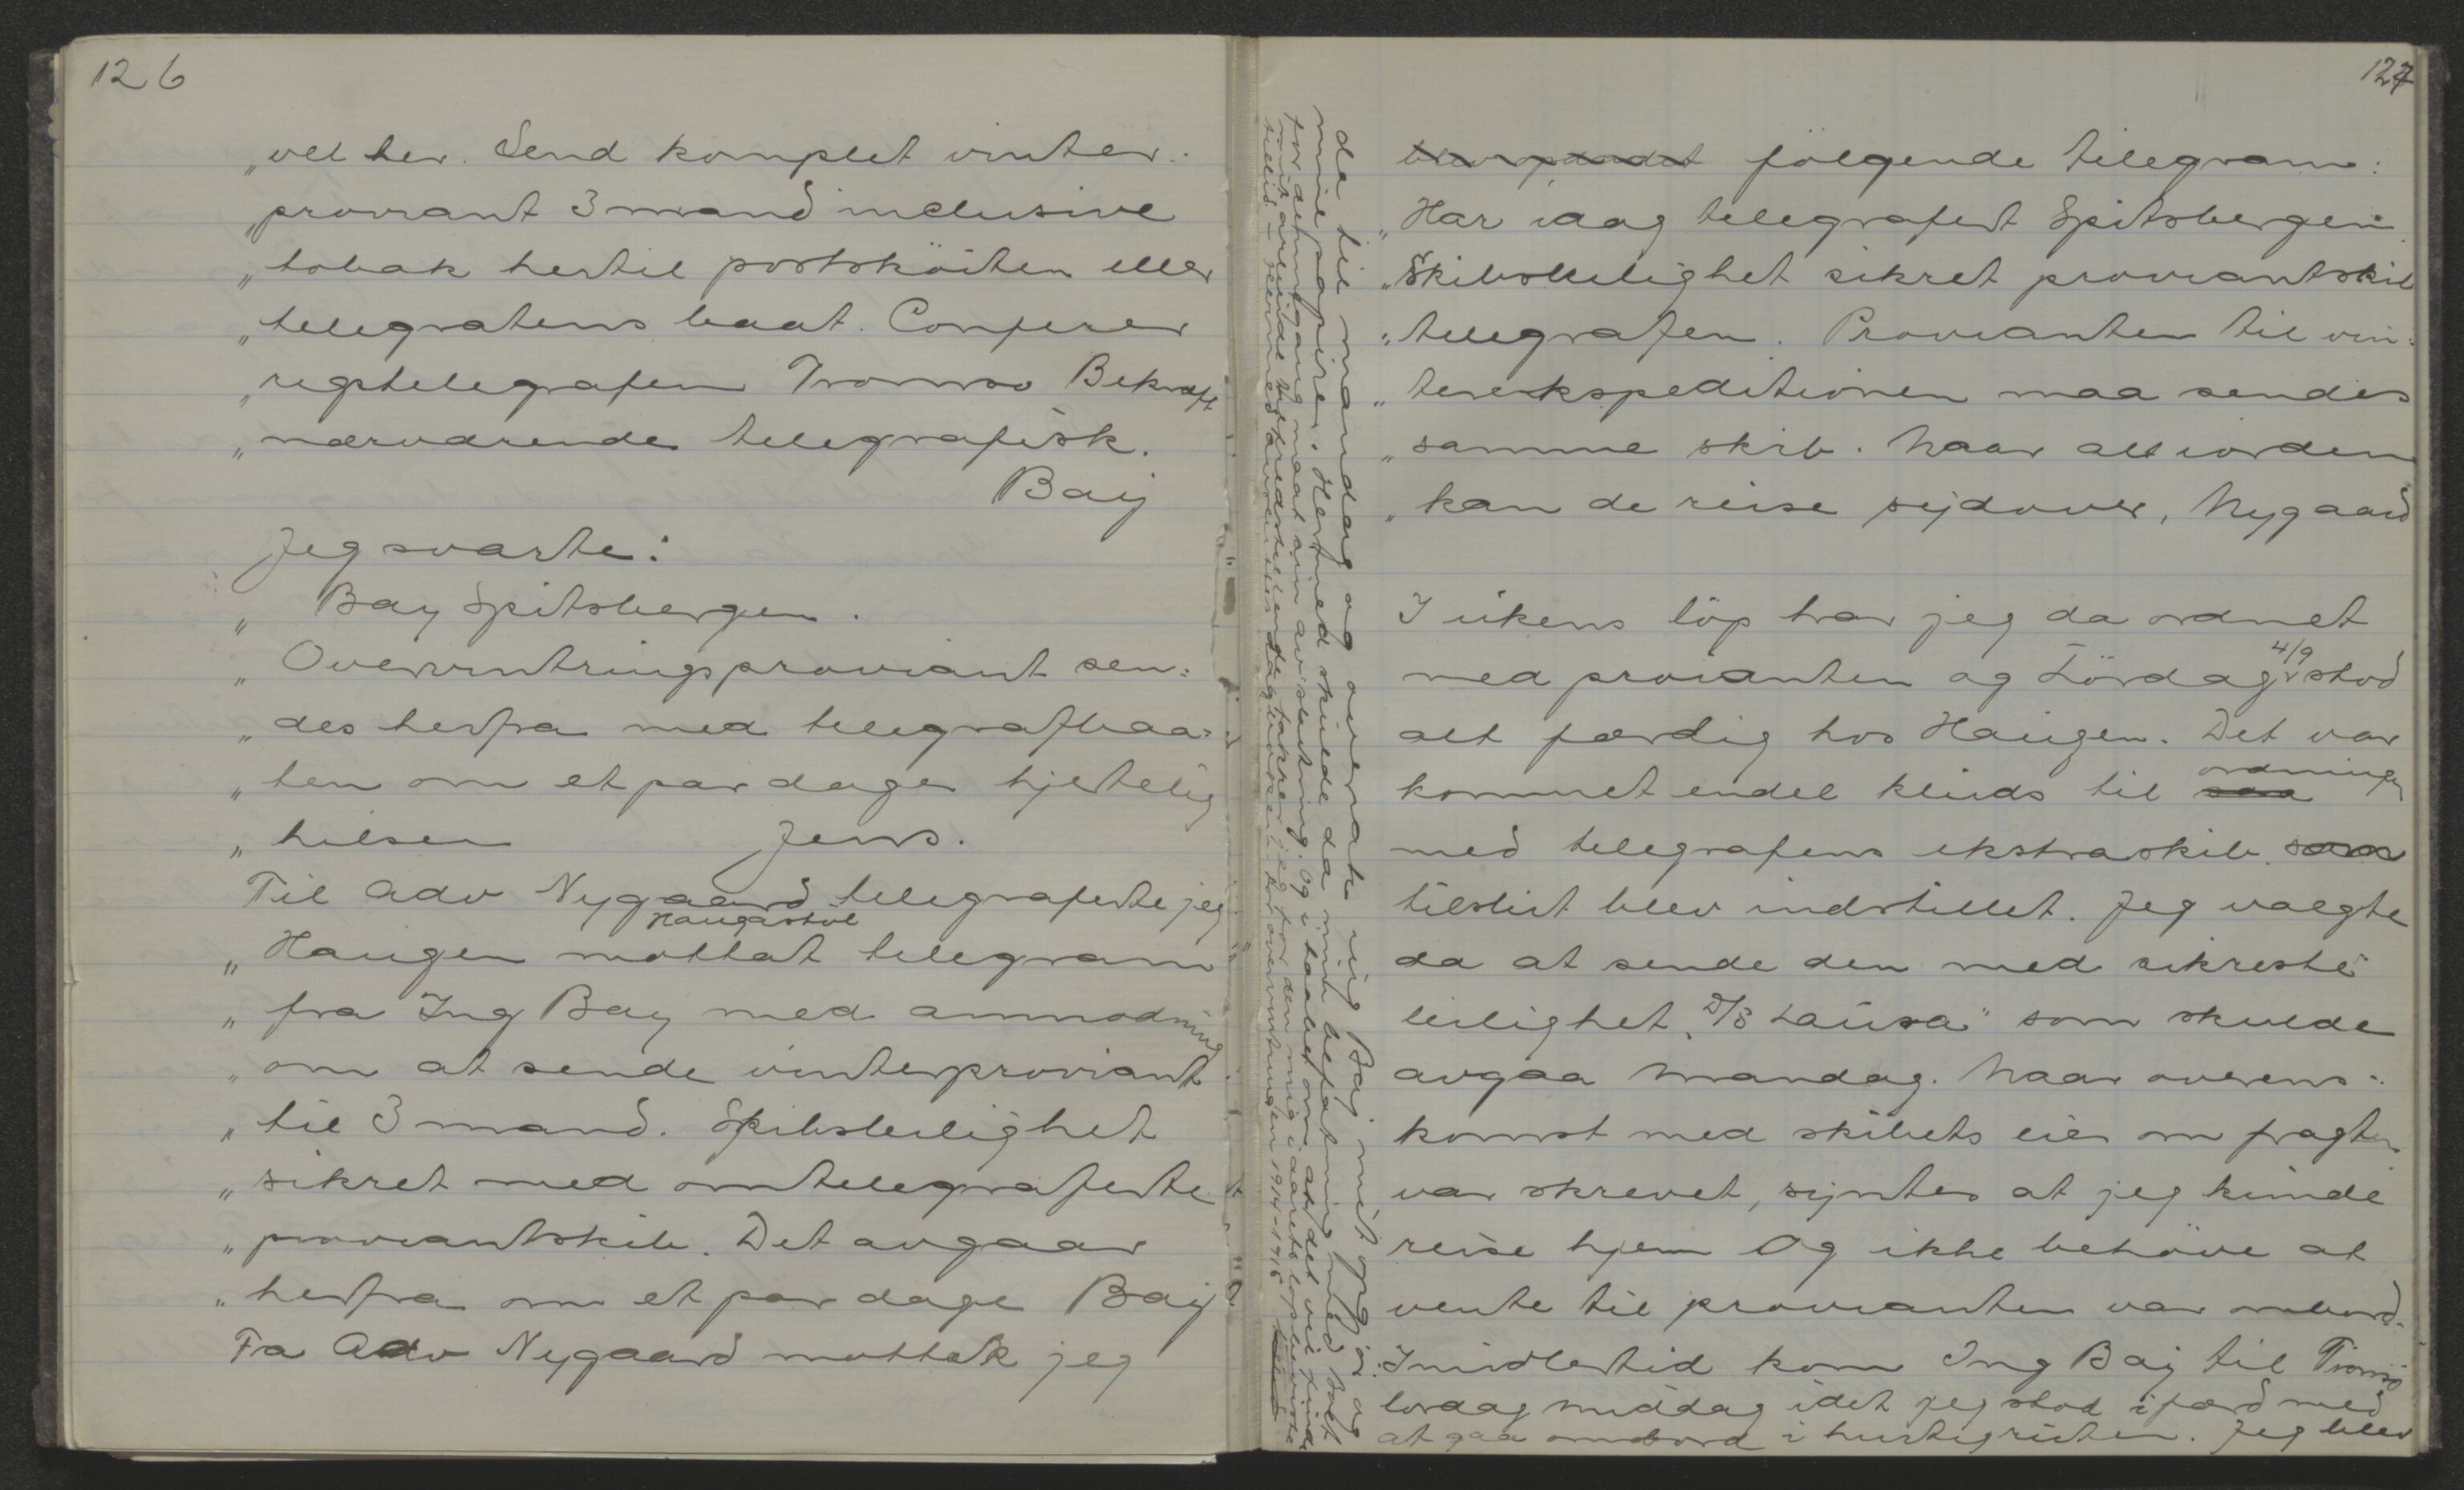 126
„vel her. Send komplet vinter-
„proviant 3 mand inclusive
„tobak hertil postsköiten eller
„telegrafens baat. Conferer
„rigstelegrafen Tromsø Bekræft
„nærværende telegrafisk.
Bay
Jeg svarte:
„ Bay Spitsbergen.
„ Overvintringsproviant sen=
„des herfra med telegrafbaa=
„ten om et par dager hjertelig
„hilsen Jens.
Til Adv Nygaard telegraferte jeg
Haugastöl
„Haugen mottat telegram
„fra Ing Bay med anmodning
„om at sende vinterproviant
„til 3 mand. Skibsleilighet
„sikret med omtelegraferte
„proviantskib. Det avgaar
„herfra om et par dage Bay
Fra Adv Nygaard mottok jeg
127
følgende telegram:
„Har idag telegrafert Spitsbergen
„Skibsleilighet sikret proviantskib
„telegrafen. Provianten til vin=
„terekspeditionen maa sendes
„samme skib. Naar alt iorden
„kan de reise sydover, Nygaard
I ukens löp har jeg da ordnet
med provianten og Lördag 4/9 stod
alt færdig hos Haugen. Det var
kommet endel kluds til saa ordningen
med telegrafens ekstraskib. som
tilslut blev indstillet. Jeg valgte
da at sende den med sikreste
leilighet, D/S Laura" som skulde
avgaa Mandag. Naar overens-
komst med skibets eier om fragten
var skrevet, syntes at jeg kunde
reise hjem Og ikke behöve at
vente til provianten var ombord.
Imidlertid kom Ing Bay til Tromsö
lördag middag idet jeg stod i færd med
at gaa ombord i hurtigruten. Jeg blev
da til mandag og overrakte ing Bay mit opgjör og
mine papirer. Hermed skulde da min befatning med
for dennegang naat sin avslutning. Og i haabet om at det vil finde
mit arbeide tilfredsstillende takker jeg for den mig i aarets löp beviste
tillid – overvintringen 1914-1915